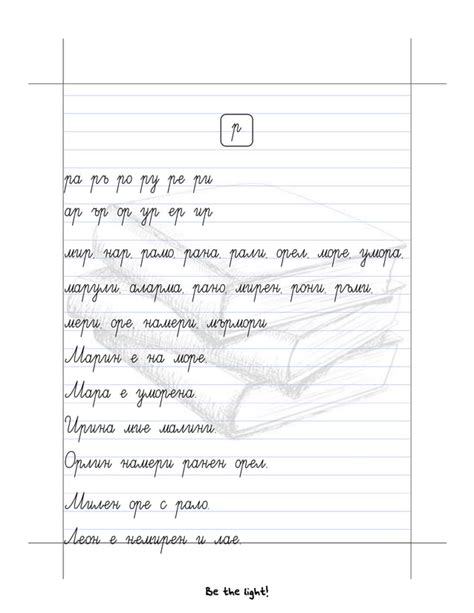 р
ра ръ ро ру ре ри
ар ър ор ур ер ир
мир, нар, рамо, рана, рали, орел, море, умора,
марули, аларма, рано, мирен, рони, ръми,
мери, оре, намери, мърмори
Марин е на море.
Мара е уморена.
Ирина мие малини.
Орлин намери ранен орел.
Милен оре с рало.
Леон е немирен и лае.
Be the light!